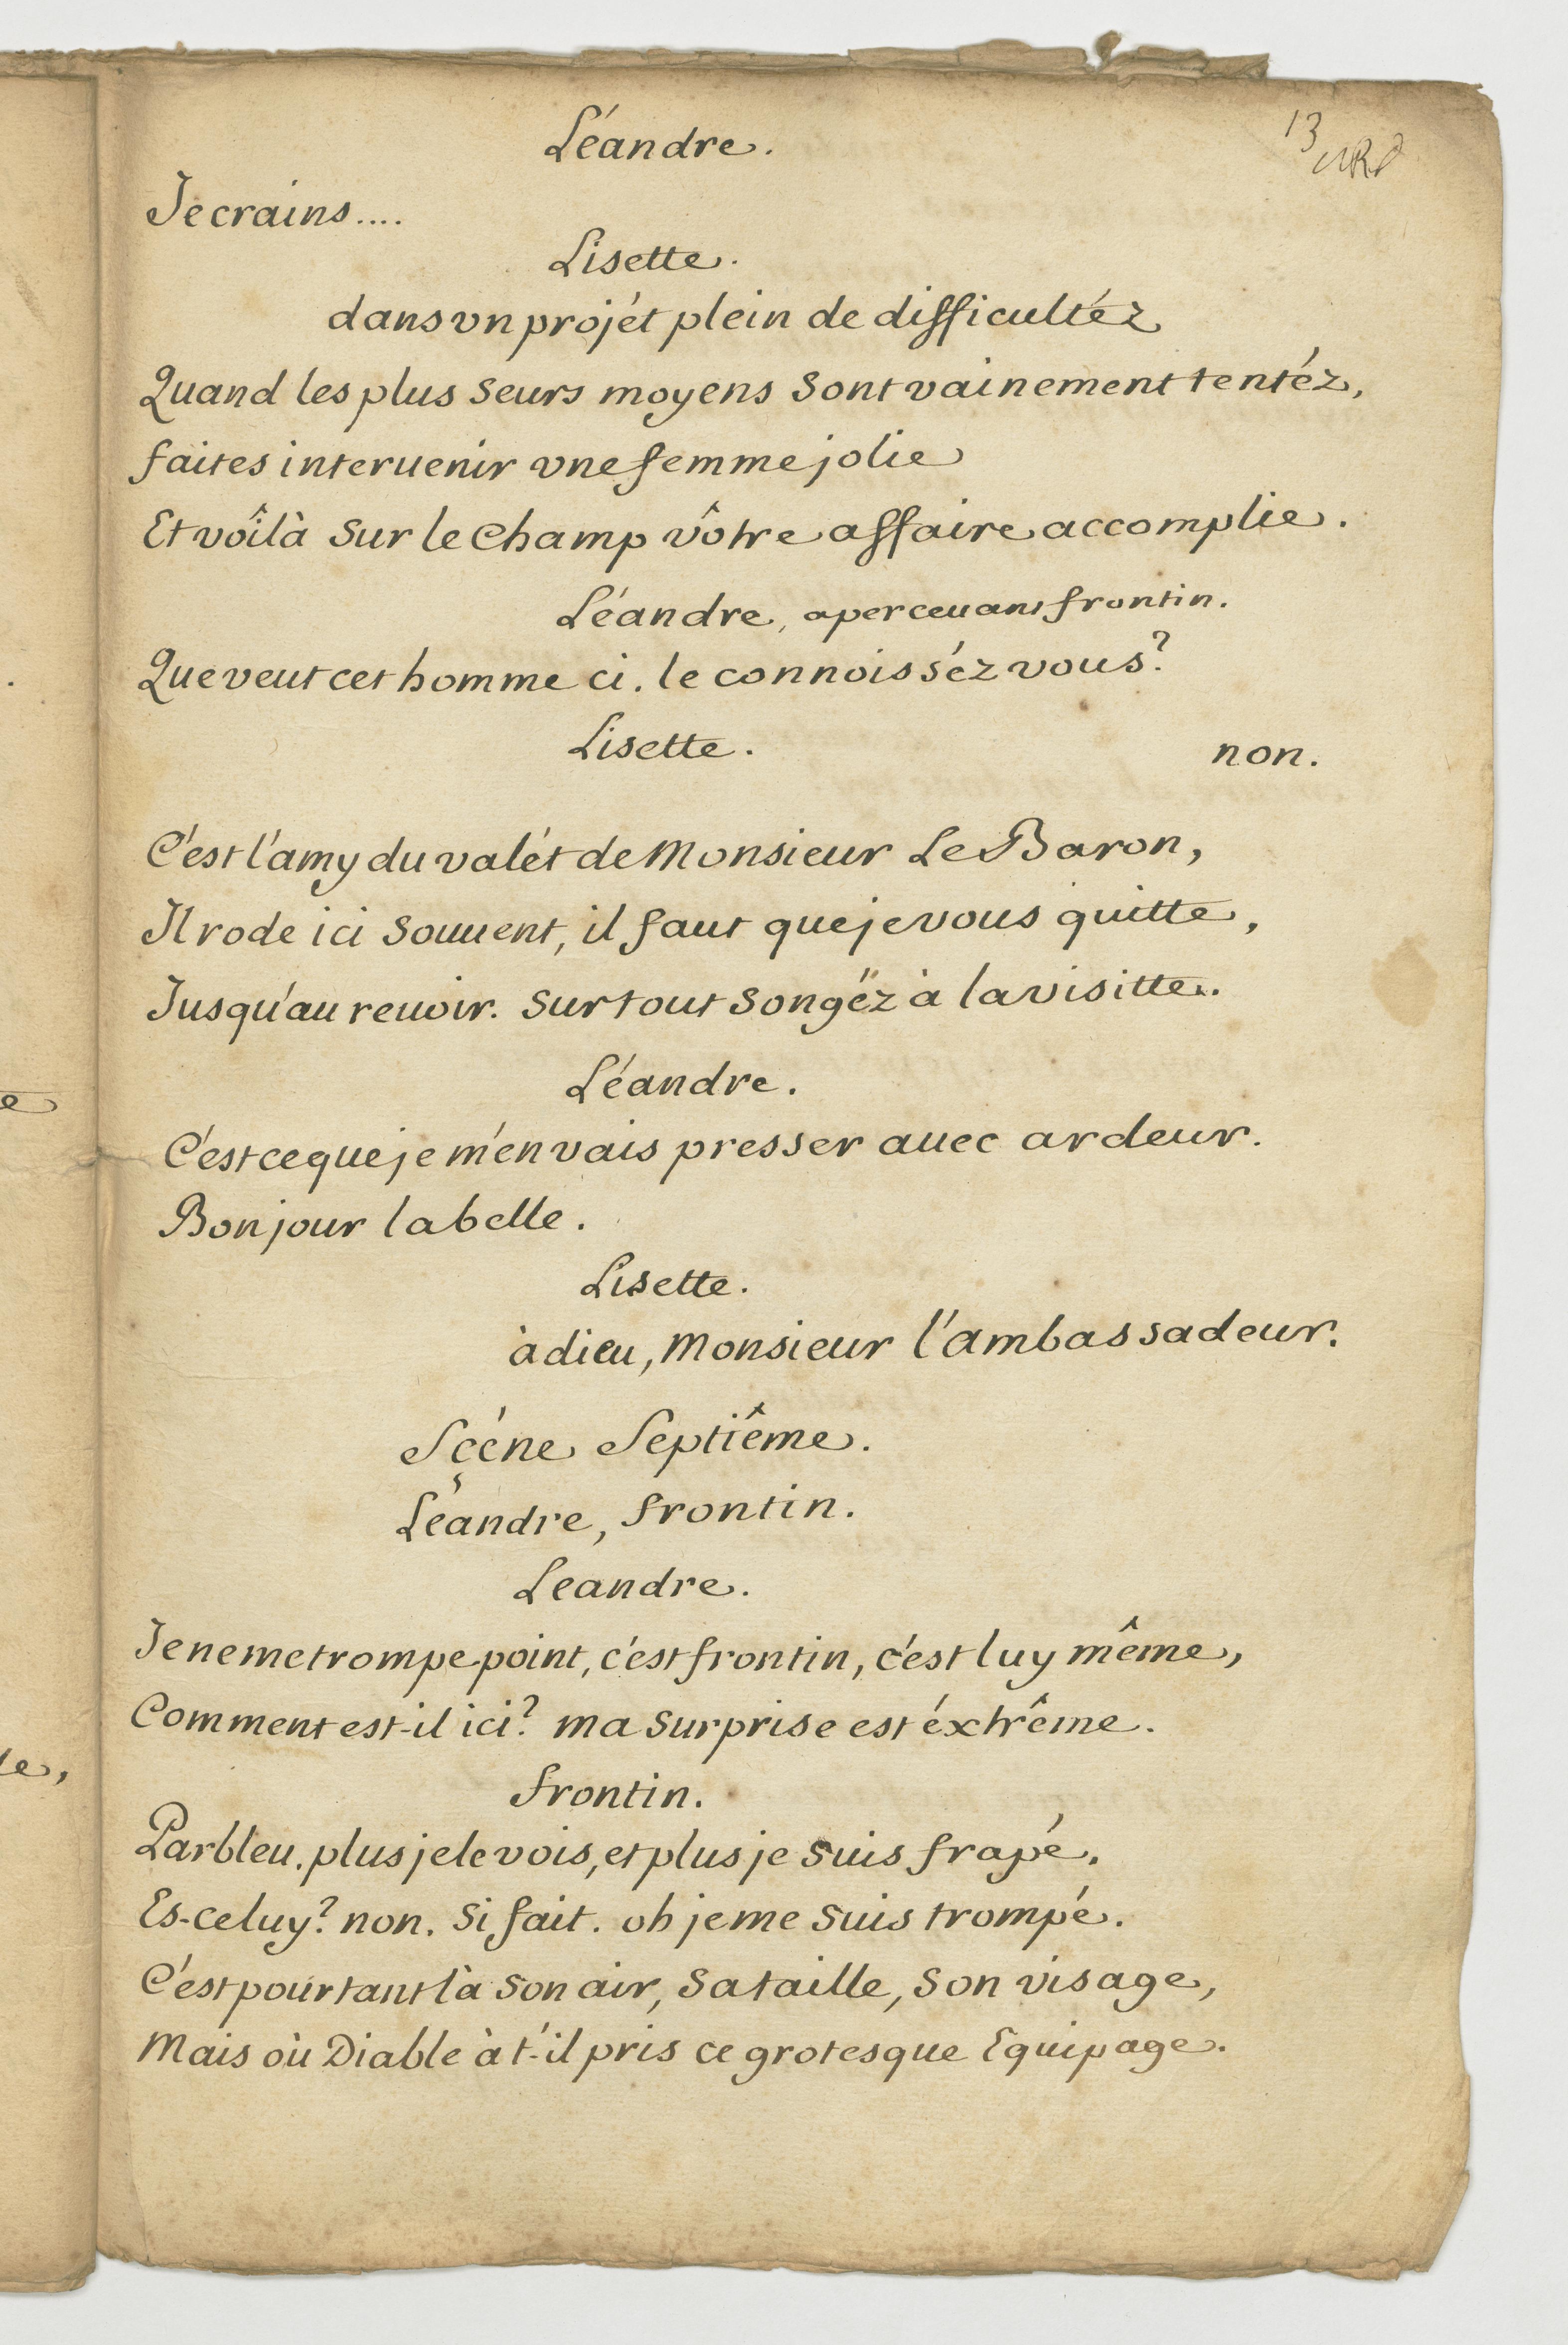 13
Léandre.
Je crains....
Lisette.
dans vn projét plein de difficultéz
Quand les plus seurs moyens sont vainement tentéz,
faites interuenir vne femme jolie
Et voîlà sur le Champ vôtre affaire accomplie.
Léandre, aperceuant frontin.
Que veut cet homme ci. le connoisséz vous?
Lisette.
non.
C'est l'amy du valét de Monsieur Le Baron,
Il rode ici souuent, il faut que je vous quitte,
Jusqu'au reuoir. sur tout songéz à la visitte.
Léandre.
C'est ce que je m'en vais presser auec ardeur.
Bonjour la belle.
Lisette.
à dieu, Monsieur l'ambassadeur.
Sçéne Septiême.
Léandre, frontin.
Leandre.
Je ne me trompe point, c'est frontin, c'est luy même,
Comment est-il ici? ma surprise est éxtrême.
frontin.
Parbleu. plus je le vois, et plus je suis frapé.
Es-ce luy? non. si fait. oh je me suis trompé.
C'est pourtant là son air, sa taille, son visage,
Mais où Diable à t'-il pris ce grotesque Equipage.
e
le,